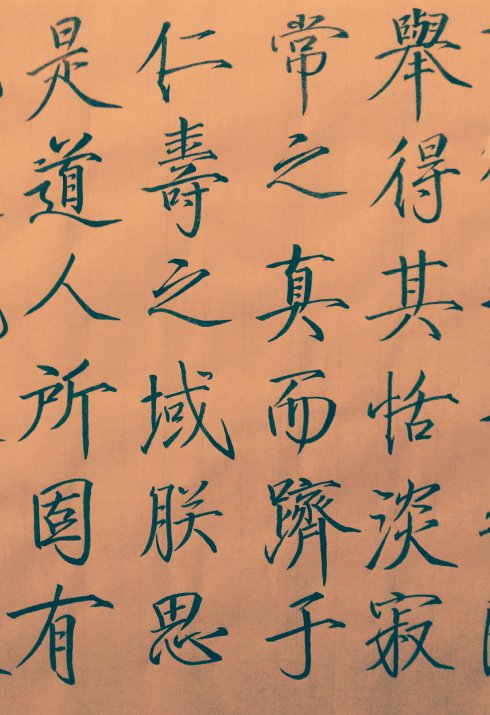 舉得其恬淡寂
常之真而躋于
仁壽之域朕思
是道人所固有